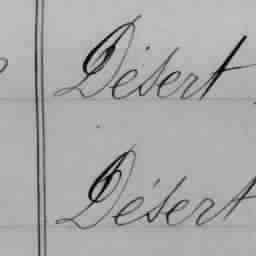 Désert
Désert